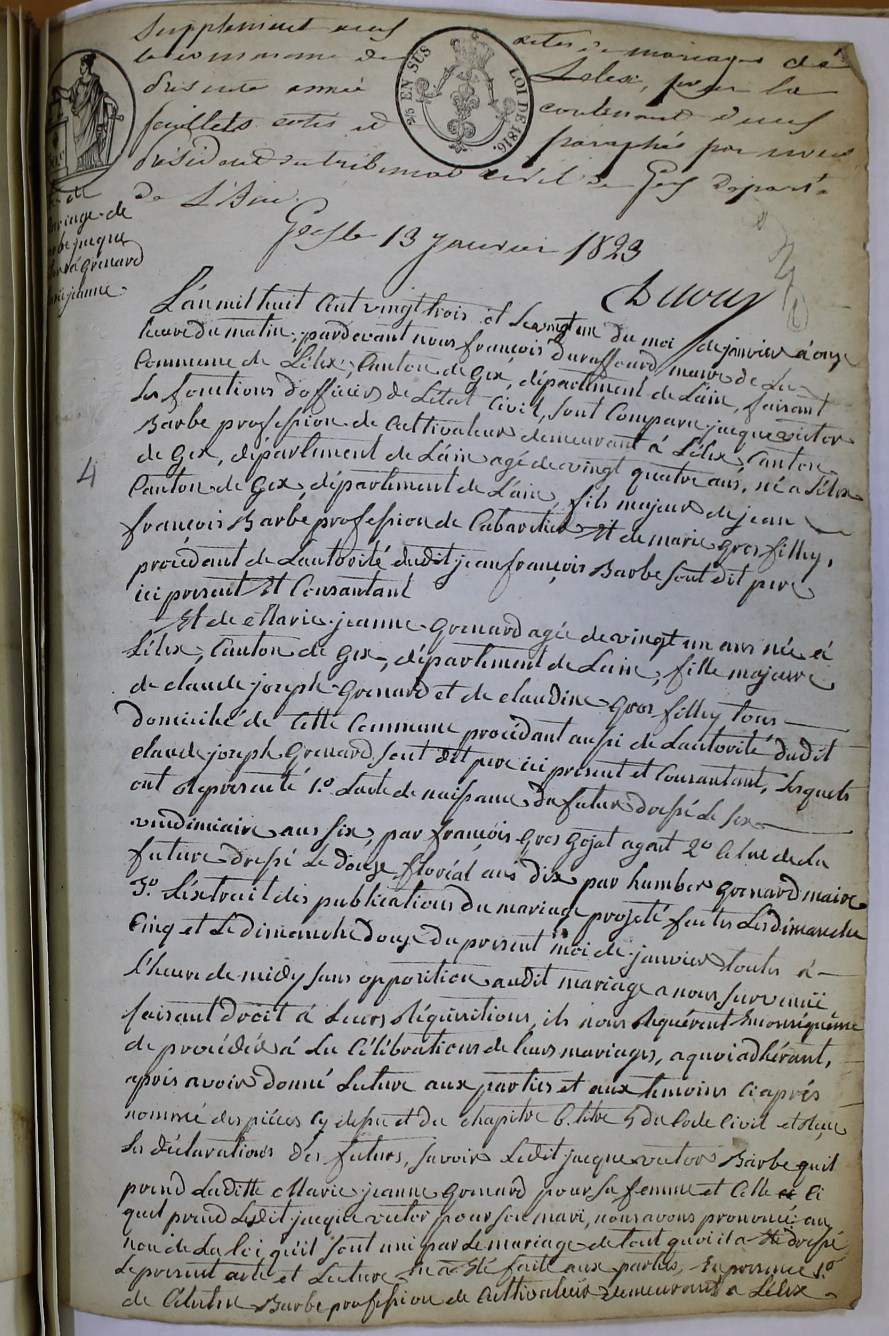 Supplement aux actes de mariages de
la commune de Lelex, pour la
présente année contenant deux
feuillets cotés et paraphés par nous
président du tribunal civil de Gex départ.t
de L'Ain
Gex le 13 janvier 1823
25 EN SUS LOI DE 1816
de
mariage de
Barbe jacque
victor à Grenard
marie jeanne
4
L'an mil huit cent vingt trois et le vingt un du moi de janvier à onze
heure du matin, pardevant nous françois Duraffourd maire de la
Commune de Lélex, Canton de Gex, département de L'ain, faisant
les fonctions d'officier de L'état Civil, sont Comparu jacque victor
Barbe profession de Cultivateur demeurant à Lélex, Canton
de Gex, département de L'ain agé de vingt quatre ans, né a Lélex
Canton de Gex, département de L'ain, fils majeur de jean
françois Barbe profession de Cabaretier Et de marie gros filley,
procédant de L'autorité dudit jean françois Barbe sout dit pere
ici present Et Consantant
Et de Marie jeanne Grenard agée de vingt un ans née à
Lélex, Canton de Gex, département de L'ain, fille majeure
de claude joseph Grenard et de claudine Gros filley tous
domicilié de Cette Commune procédant aussi de L'autorité dudit
claude joseph Grenard sout dit pere ici present et Consantant, Lesquels
ont Représenté 1.o L'acte de naissance du futur dressé Le six
vendimiaire ans six, par françois Gros Gojat agent 2.o Celui de La
future dressé Le douze floréal ans dix par humber Grenard maire
3.o L'éxtrait des publications du mariage projeté faites Les dimanche
Cinq et Le dimanche douze du present moi de janvier toutes à
l'heure de midy sans opposition audit mariage a nous survenüe
faisant droit à Leurs Réquisitions, ils nous Requérent En conséquence
de procédér à La Célébrations de leurs mariages, a quoi adhérant,
après avoir donné Lecture aux parties et aux temoins ci après
nommé des piéces cy dessu et du chapitre 6. titre 5 du Code Civil et Reçu
Les déclarations des futurs, savoir Ledit jacque victor Barbe quil
prend Laditte Marie jeanne Grenard pour sa femme et Celle ci
quel prend Ledit jacque victor pour son mari, nous avons prononcé au
nom de La loi qu'il sont uni par Le mariage de tout quoi il a Eté dressé
Le present acte et Lecture En a Eté faite aux parties, En presence 1.o
de Célestin Barbe profession de Cultivateur demeurant a Lélex